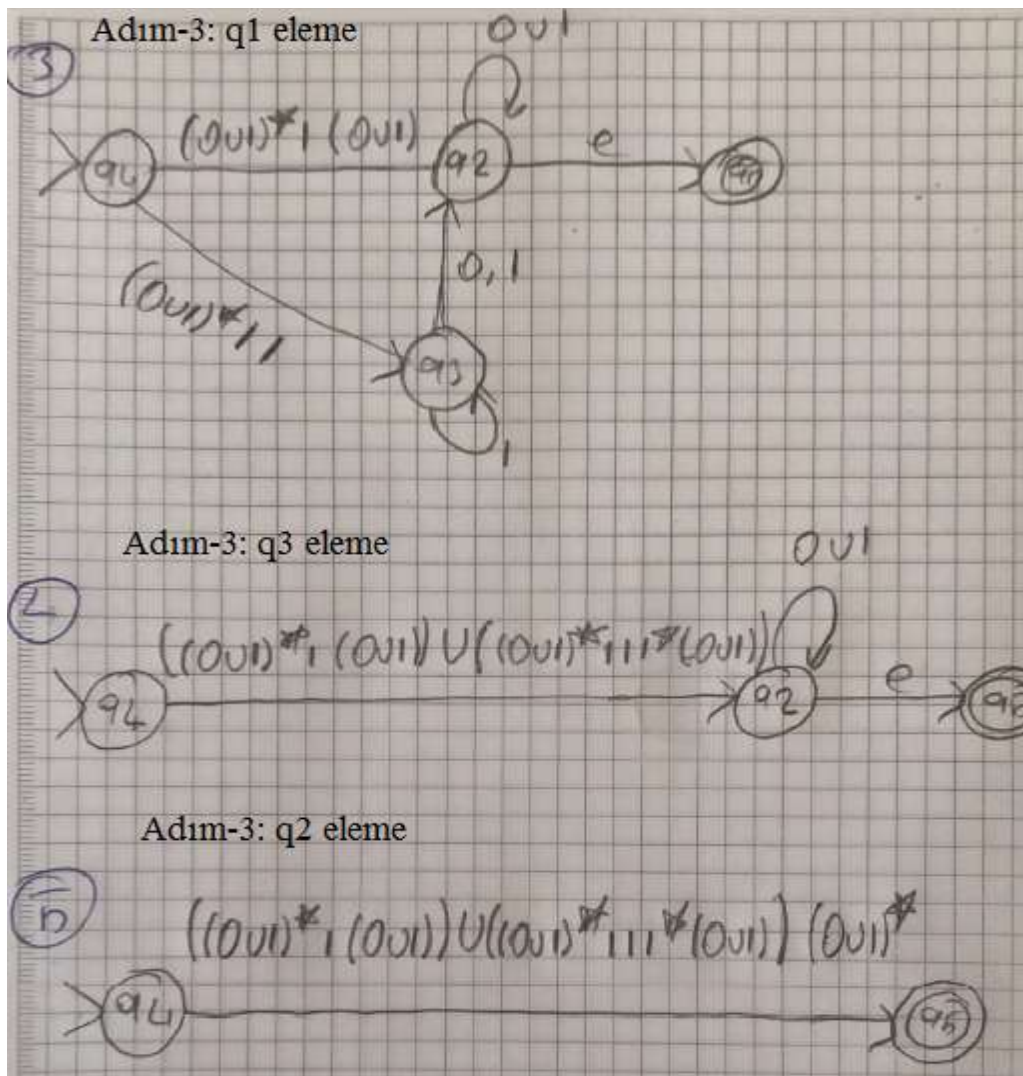 Adım-3: q1 eleme
3
0∪1
(0∪1)*1(0∪1)
e
q4
q2
q5
0,1
(0∪1)*11
q3
1
Adım-3: q3 eleme
0∪1
4
((0∪1)*1(0∪1))∪((0∪1)*111*(0∪1))
e
q4
q2
q5
Adım-3: q2 eleme
5
((0∪1)*1(0∪1))∪((0∪1)*111*(0∪1))(0∪1)*
q4
q5